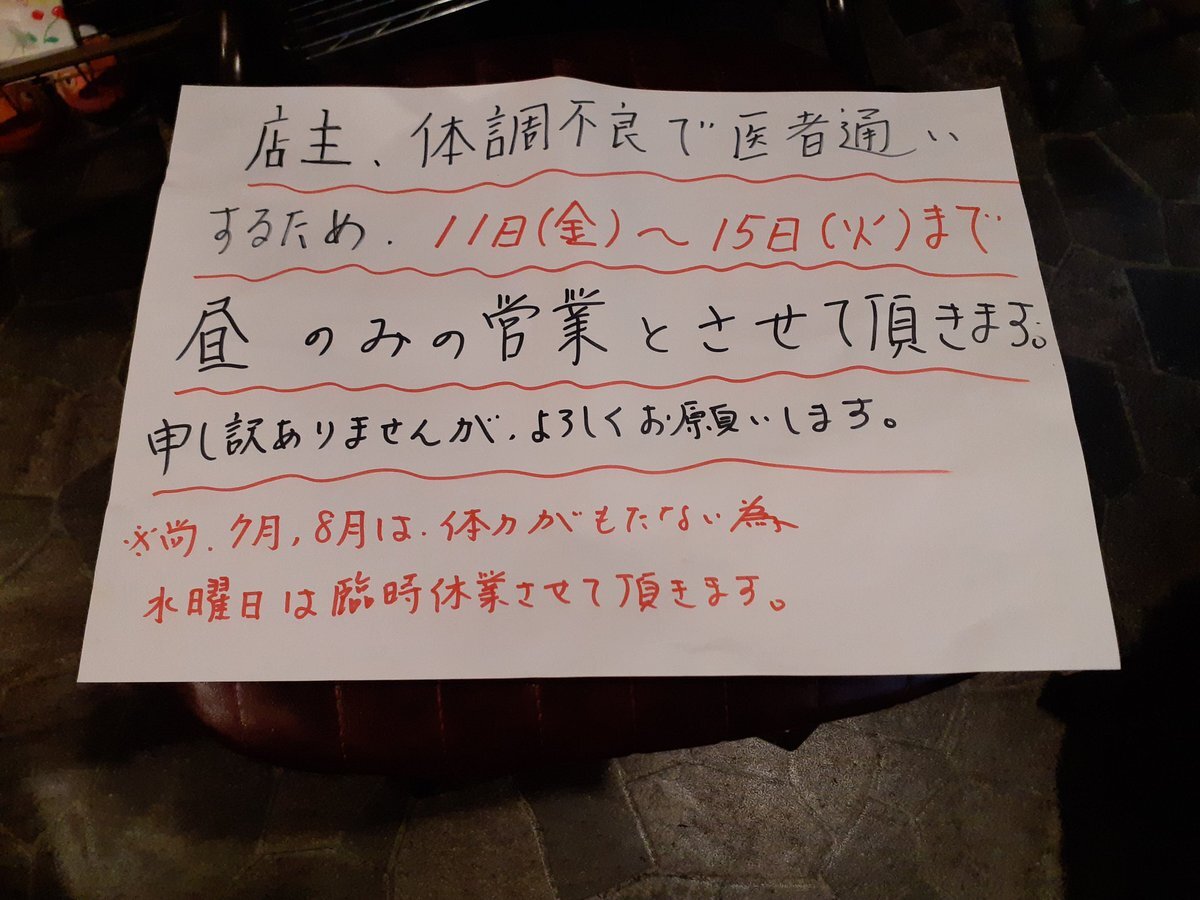 店主、体調不良で医者通い
するため、11日(金)〜15日(火)まで
昼のみの営業とさせて頂きます。
申し訳ありませんが、よろしくお願いします。
※尚、7月、8月は、体力がもたない為、
水曜日は臨時休業させて頂きます。